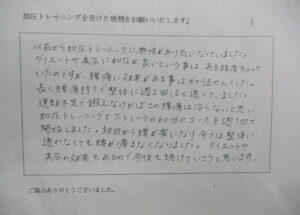 加圧トレーニングを受けた感想をお願いいたします。
以前から加圧トレーニングに興味があり気になっていました。
ダイエットや美容に加圧が良いという事は、ある程度知って
いたのですが、腰痛に効果がある事は知りませんでした。
長く腰痛持ちで整体に週2回ほど通っていました。
運動不足で鍛えなければこの腰痛は治らないと思い
加圧トレーニングとストレッチの60分のコースを週1回で
開始しました。初回から腰が楽になり今では整体に
通わなくても腰が痛まなくなりました。ダイエットや
美容の効果もあるので今後も続けていこうと思います。
ご協力ありがとうございました。